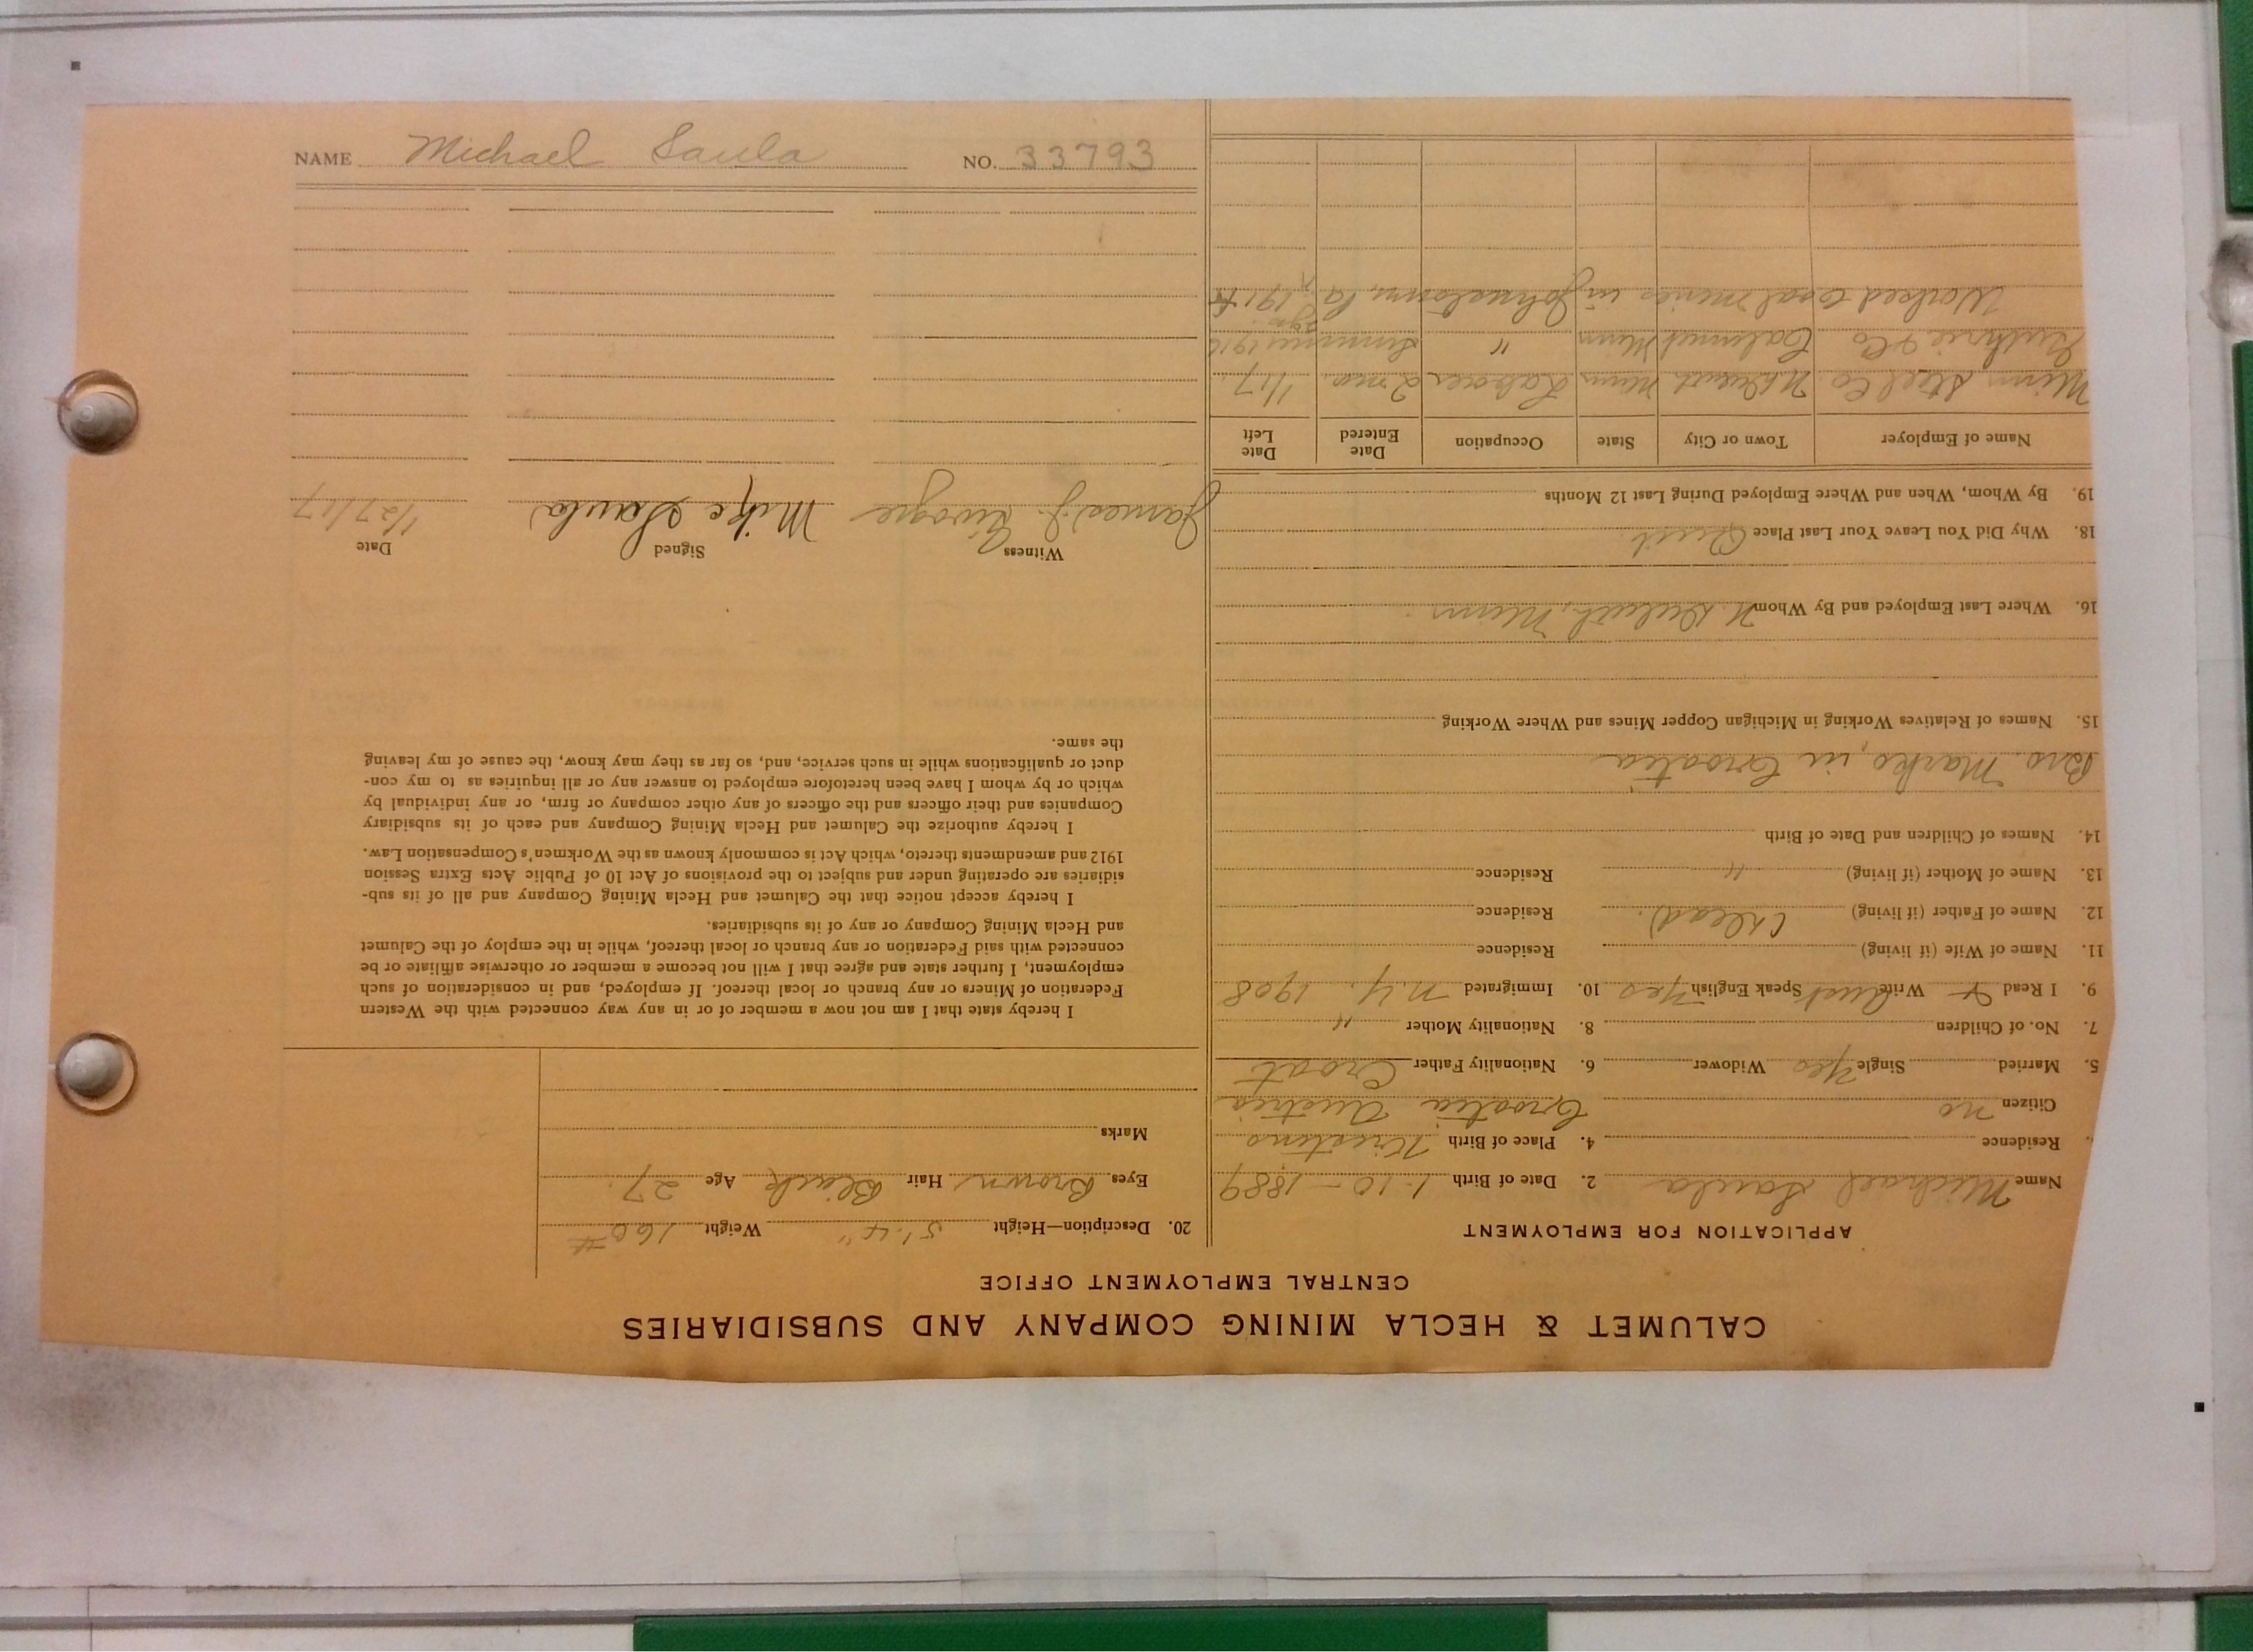 NAME Michael Saula NO. 33793
CALUMET & HECLA MINING COMPANY AND SUBSIDIARIES
CENTRAL EMPLOYMENT OFFICE
APPLICATION FOR EMPLOYMENT
Name Michael Saula 2. Date of Birth 1-10-1889
Residence 4. Place of Birth
Citizen no Croatia Austria
5. Married Single Yes Widower 6. Nationality Father Croat
7. No. of Children 8. Nationality Mother "
9. I Read & Write Aust Speak English Yes 10. Immigrated N.Y. 1908
11. Name of Wife (if living) Residence
12. Name of Father (if living) (dead) Residence
13. Name of Mother (if living) " Residence
14. Names of Children and Date of Birth
Bro. Marko, in Croatia
15. Names of Relatives Working in Michigan Copper Mines and Where Working
16. Where Last Employed and By Whom N. Duluth, Minn
18. Why Did You Leave Your Last Place Quit
19. By Whom, When and Where Employed During Last 12 Months
Name of Employer Town or City State Occupation Date Entered Date Left
Minn Steel Co. N Duluth Minn Laborer 2 mo. 1/17.
Guthrie & Co Calumet Minn " Summer 1916
Worked Coal mines in Johnstown, Pa.
20. Description—Height 5'.4" Weight 160#
Eyes Brown Hair Black Age 27.
Marks
I hereby state that I am not now a member of or in any way connected with the Western
Federation of Miners or any branch or local thereof. If employed, and in consideration of such
employment, I further state and agree that I will not become a member or otherwise affiliate or be
connected with said Federation or any branch or local thereof, while in the employ of the Calumet
and Hecla Mining Company or any of its subsidiaries.
I hereby accept notice that the Calumet and Hecla Mining Company and all of its sub-
sidiaries are operating under and subject to the provisions of Act 10 of Public Acts Extra Session
1912 and amendments thereto, which Act is commonly known as the Workmen's Compensation Law.
I hereby authorize the Calumet and Hecla Mining Company and each of its subsidiary
Companies and their officers and the officers of any other company or firm, or any individual by
which or by whom I have been heretofore employed to answer any or all inquiries as to my con-
duct or qualifications while in such service, and, so far as they may know, the cause of my leaving
the same.
Witness Signed Date
James J. Mike Saula 1/27/17